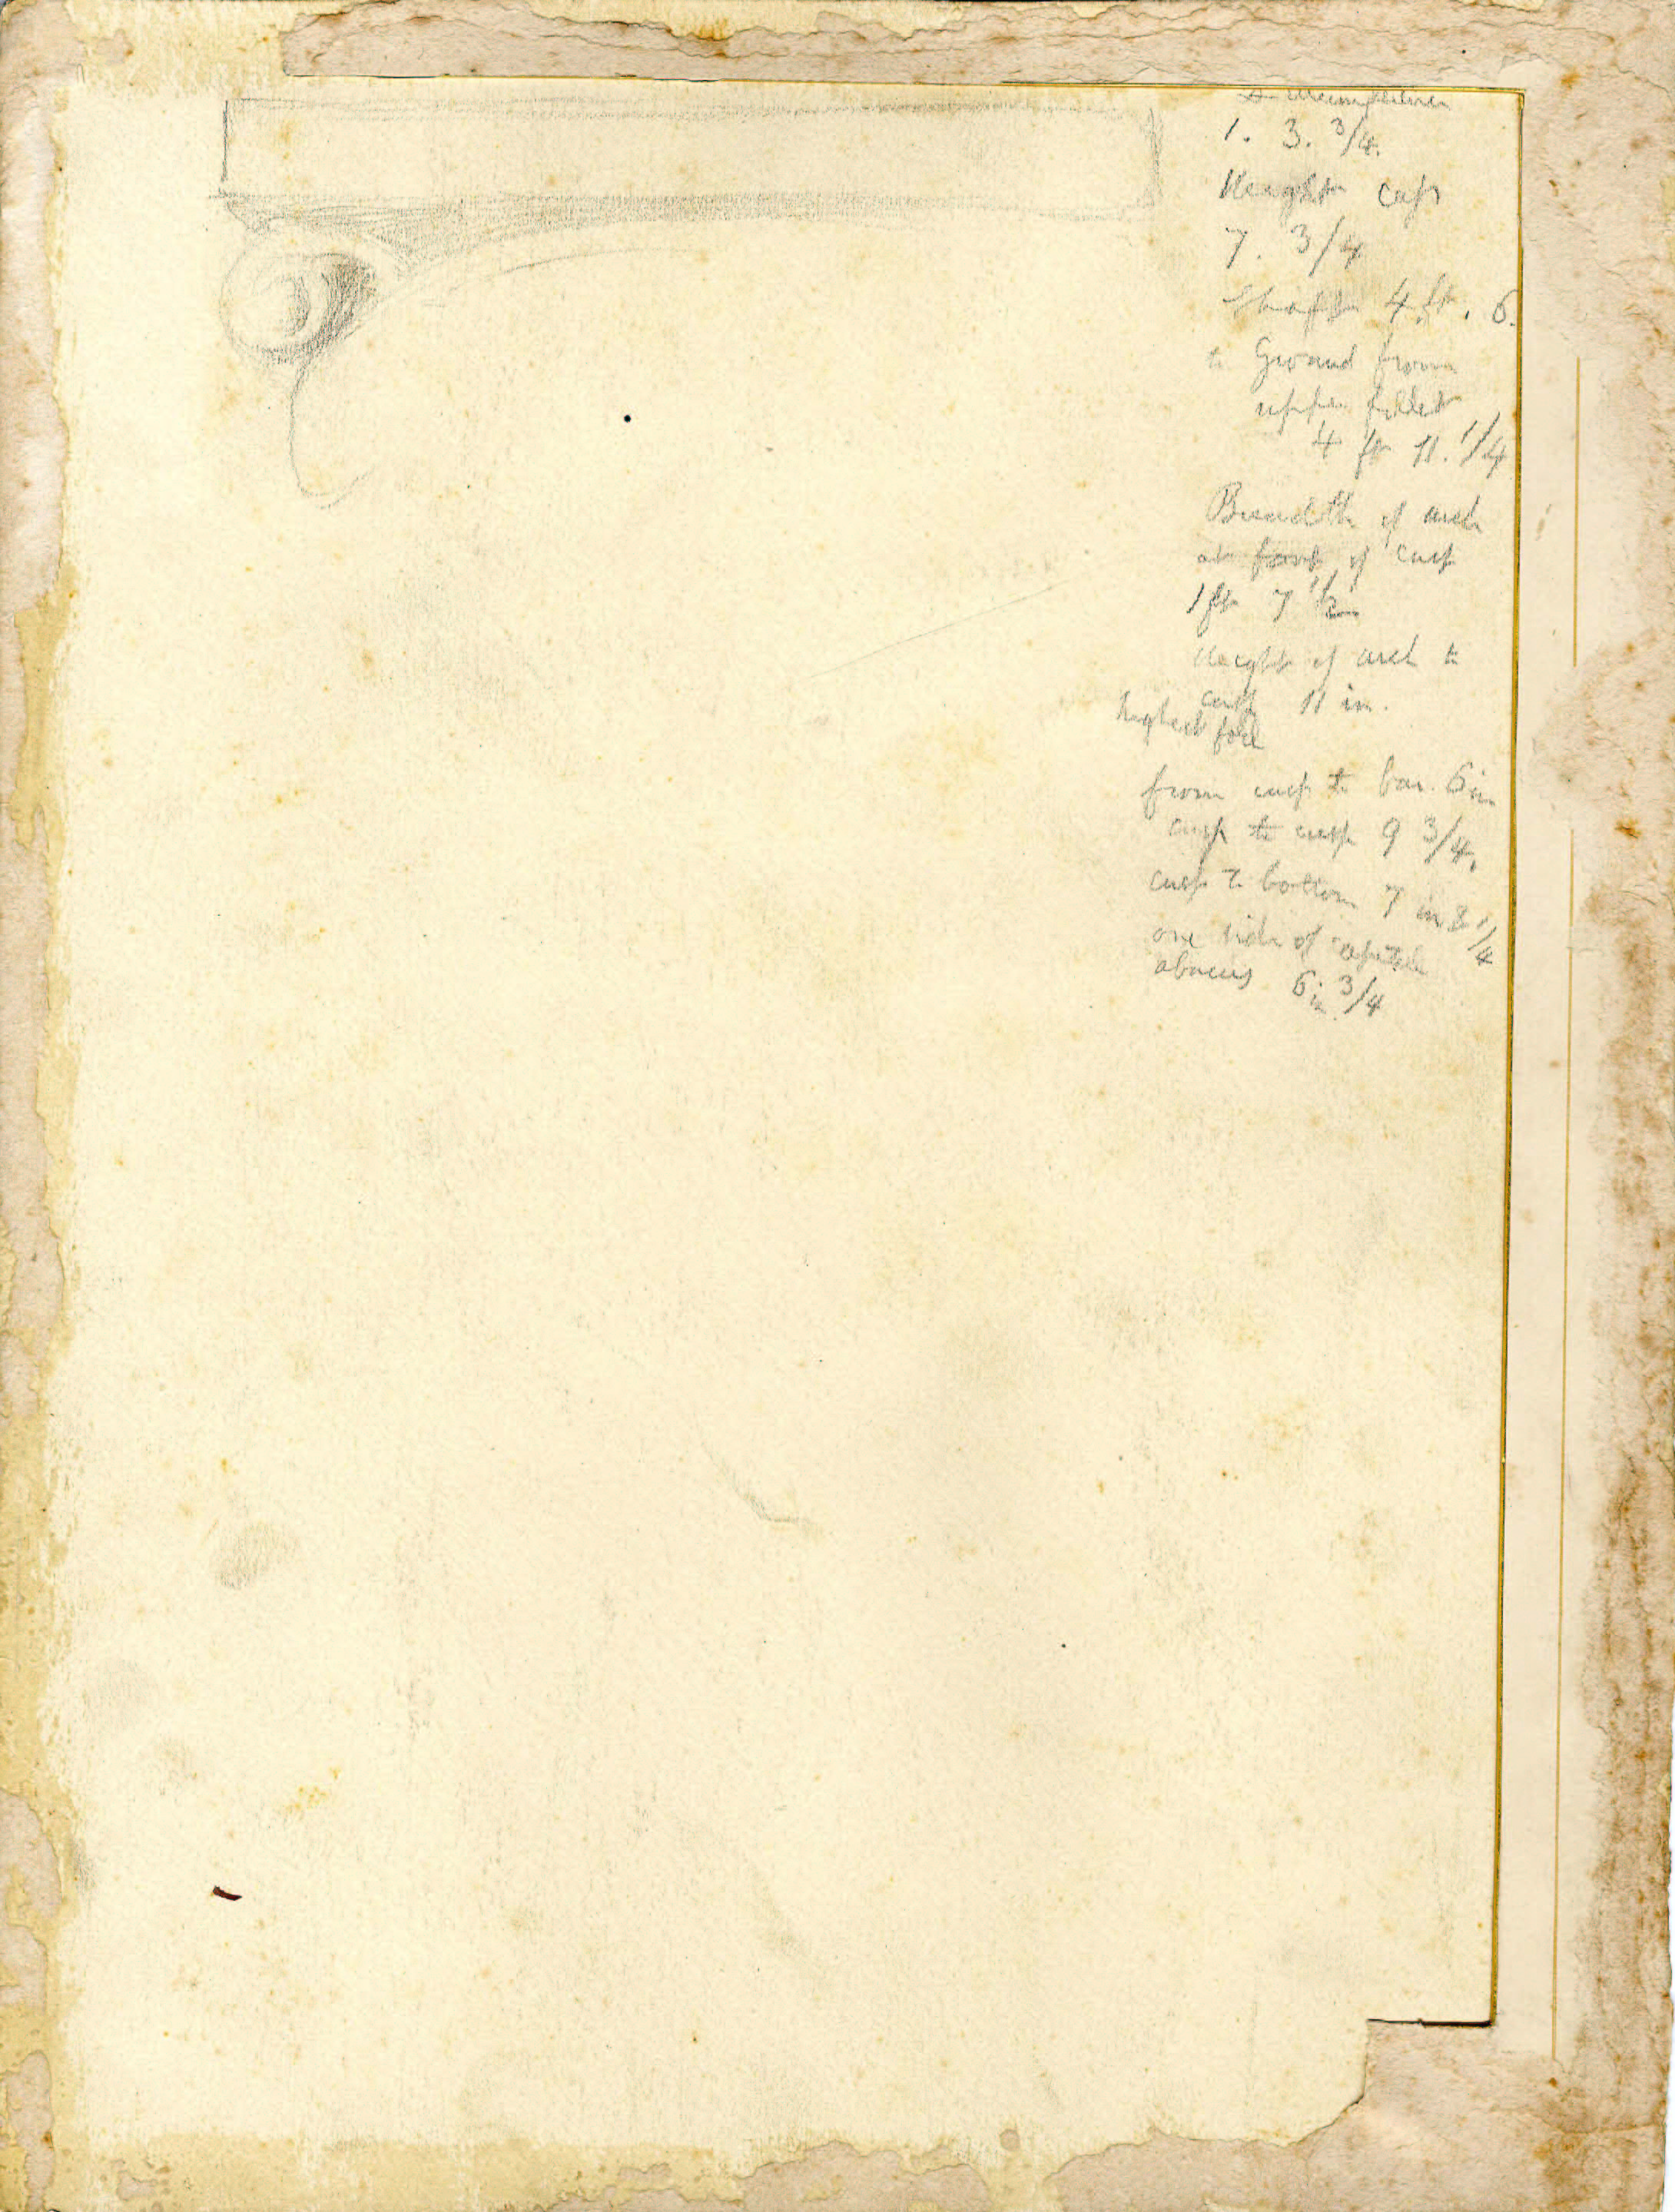 1. 3. 3/4.
Height cap
7. 3/4
Shaft 4 ft. 6.
to Ground from
upper fillet
4 ft 11. 1/4
Breadth of arch
at foot of cusp
1 ft 7 1/2
Height of arch to
cusp 11 in.
highest foil
from cusp to bar. 6 in
cusp to cusp 9 3/4.
cusp to bottom 7 in 1/4
one side of capital
abacus 6 in 3/4